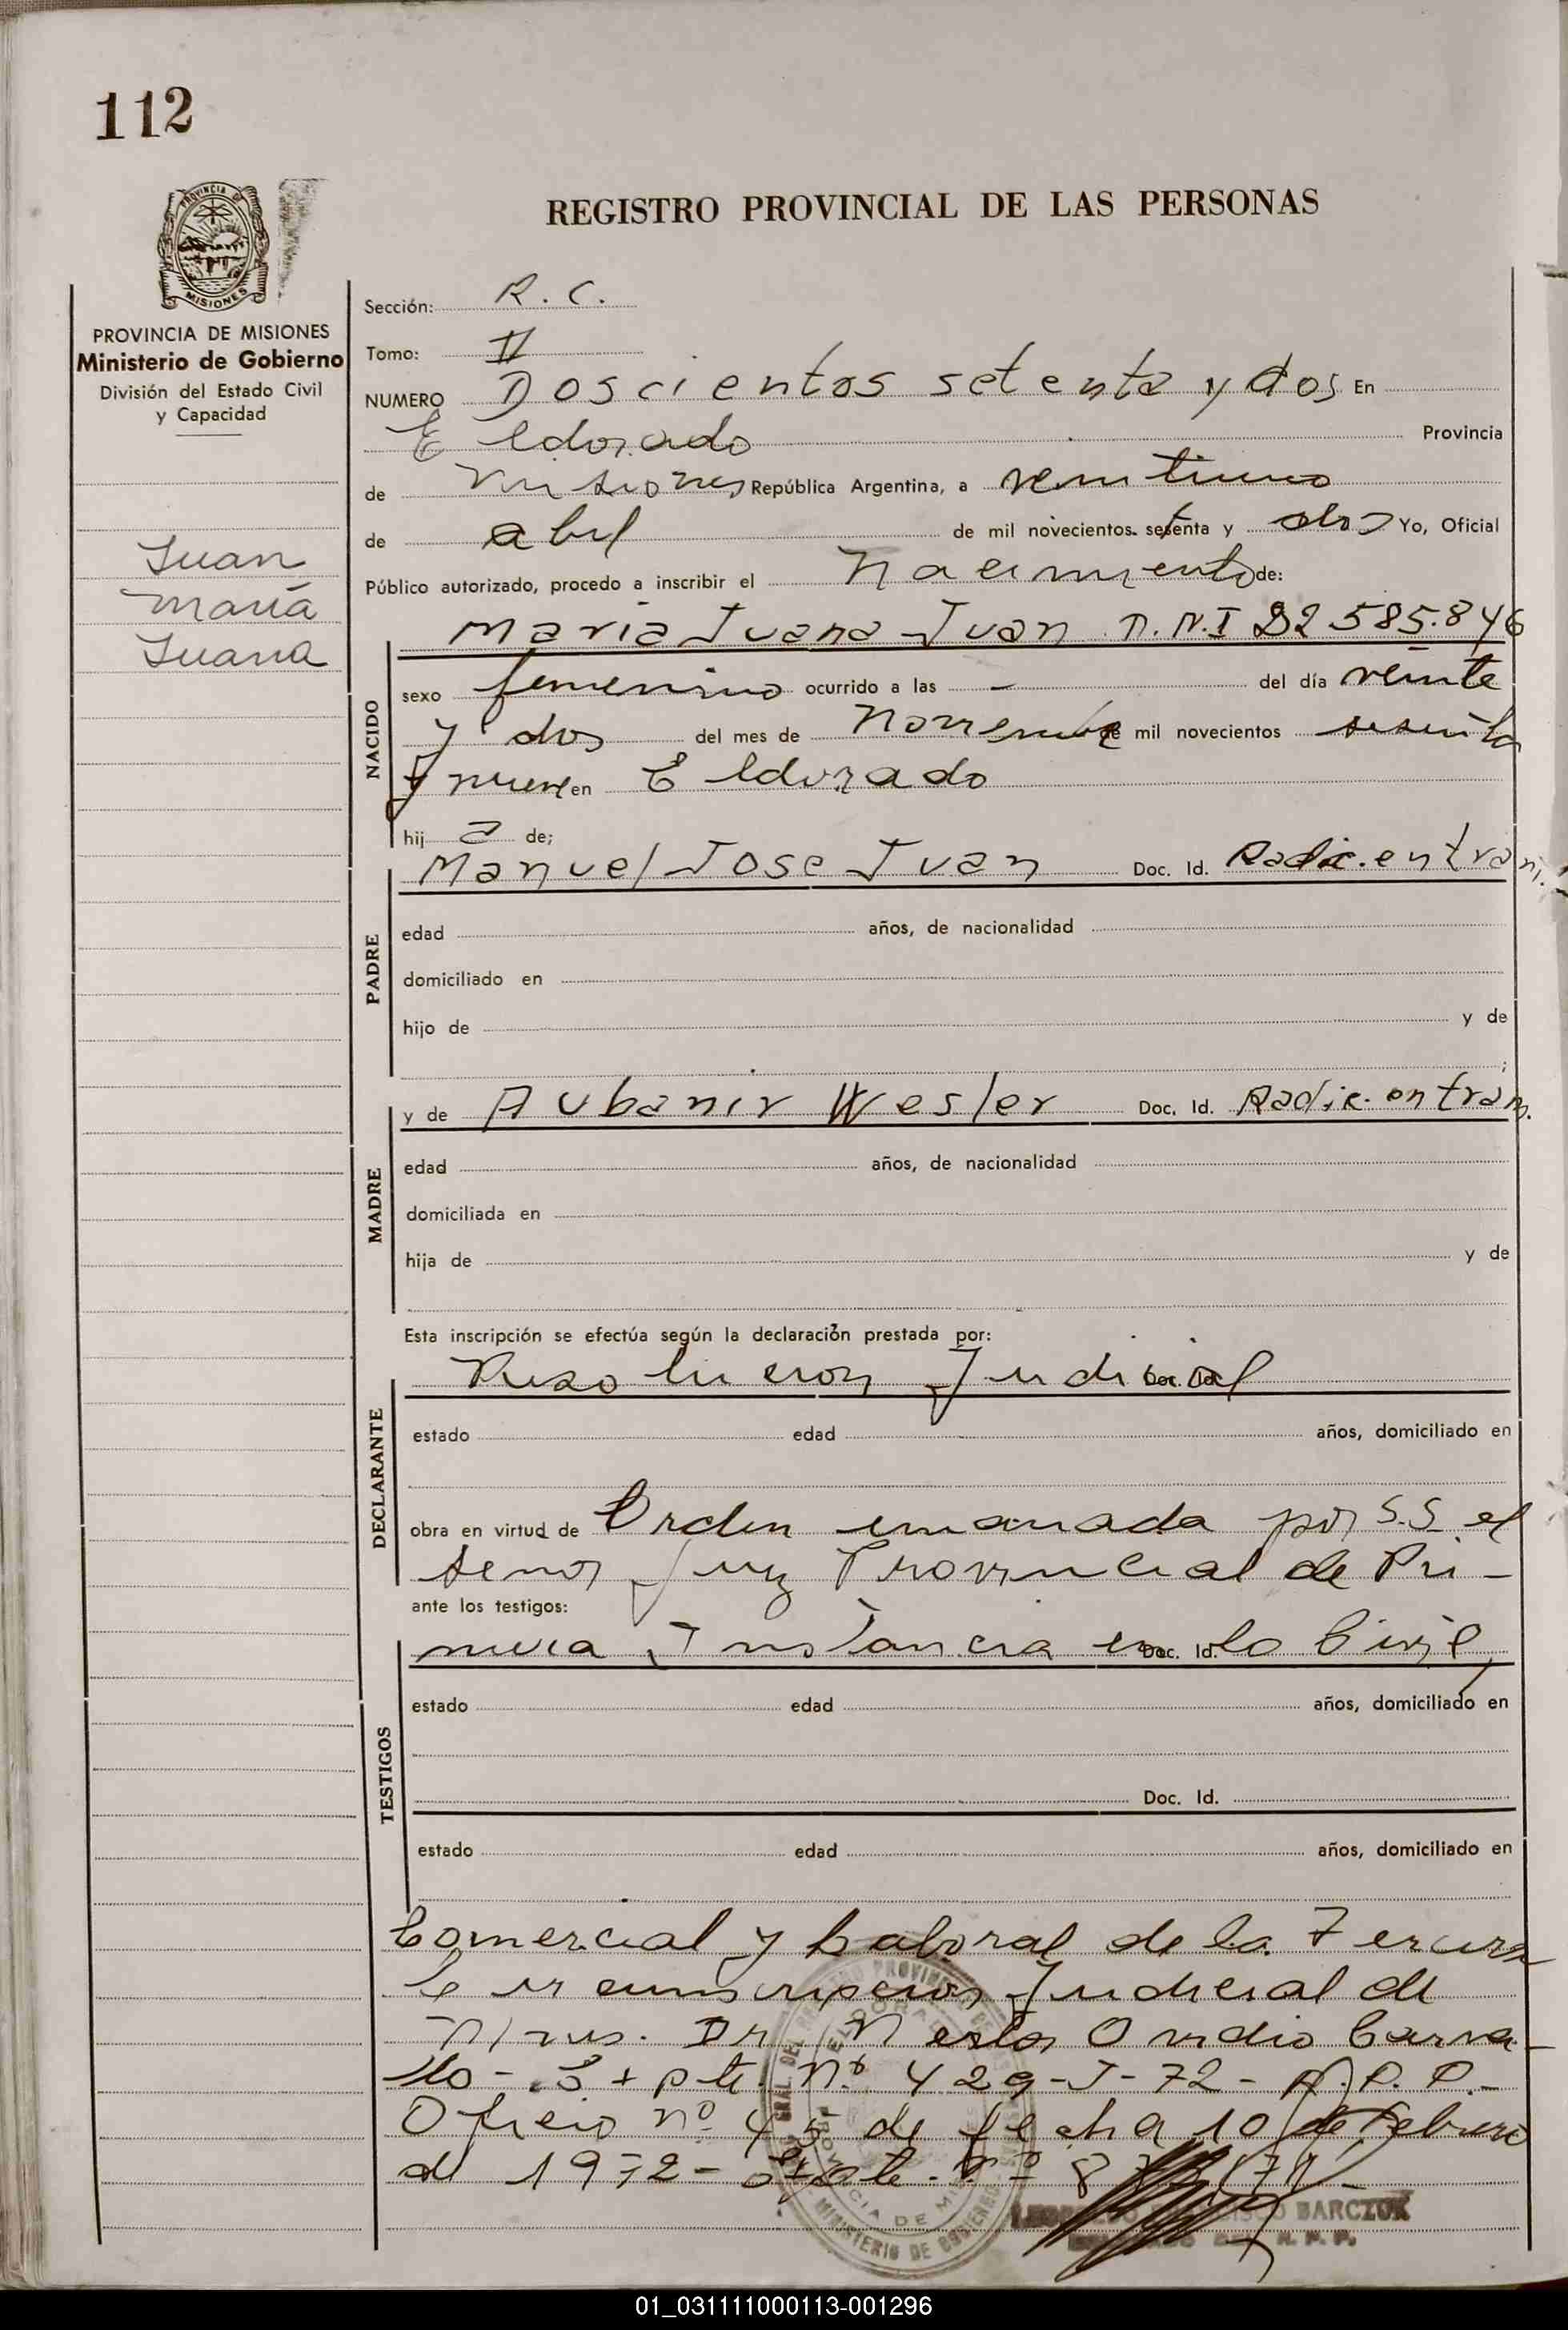 112
PROVINCIA DE
MISIONES
REGISTRO PROVINCIAL DE LAS PERSONAS
PROVINCIA DE MISIONES
Ministerio de Gobierno
División del Estado Civil
y Capacidad
Juan
María
Juana
Sección: R. C.
Tomo: II
NUMERO Doscientos setenta y dos En
Eldorado Provincia
de Misiones República Argentina, a veintiuno
de abril de mil novecientos setenta y dos Yo, Oficial
Público autorizado, procedo a inscribir el Nacimiento de:
NACIDO
Maria Juana Juan D.N.I 22 585.846
sexo femenino ocurrido a las - del día veinte
y dos del mes de Noviembre mil novecientos sesenta
y nueve en Eldorado
hij a de;
PADRE
Manuel Jose Juan Doc. Id. Radic. en trani.
edad años, de nacionalidad
domiciliado en
hijo de y de
;
MADRE
y de Aubanir Wesler Doc. Id. Radic. en tram.
edad años, de nacionalidad
domiciliada en
hija de y de
Esta inscripción se efectúa según la declaración prestada por:
DECLARANTE
Resolucion Judicial Doc. Id.
estado edad años, domiciliado en
obra en virtud de Orden emanada por S.S. el
senor Juez Provincial de Pri-
ante los testigos:
TESTIGOS
mera Instancia en lo Civil, Doc. Id.
estado edad años, domiciliado en
Doc. Id.
estado edad años, domiciliado en
Comercial y Laboral de la Tercera
Circunscripcion Judicial de
Mnes. Dr. Nestor Ovidio Carva-
llo-. Expte. Nº 429-J-72- R.P.P.-
Oficio nº 45 de fecha 10 de Febrero
de 1972- Expte. Nº
MINISTERIO DE GOBIERNO
BARCZUK
R. P. P.
01_031111000113-001296